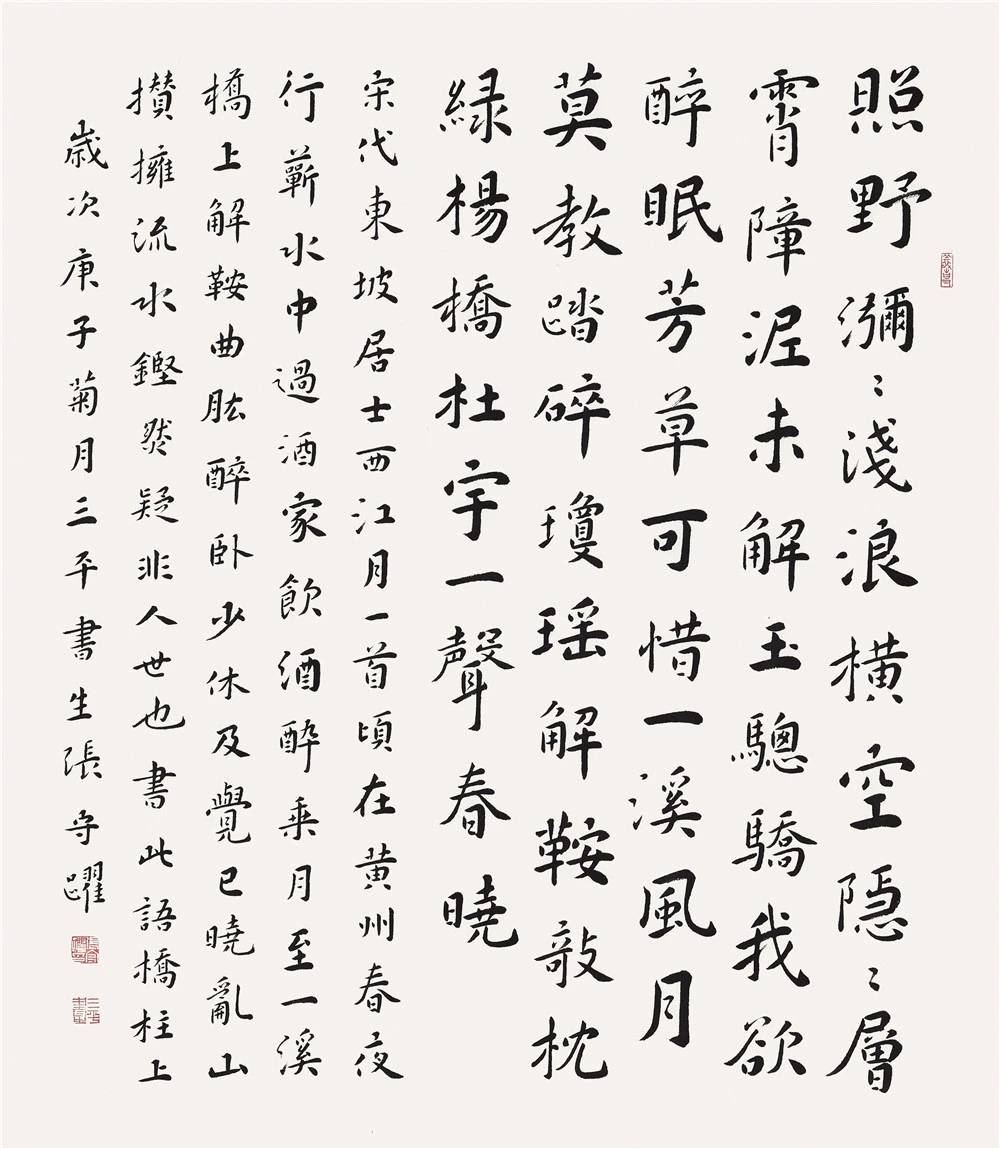 照野瀰〻淺浪橫空隐〻層
霄障泥未解玉驄驕我欲
醉眠芳草可惜一溪風月
莫教踏碎瓊瑶解鞍敧枕
緑楊橋杜宇一聲春曉
宋代東坡居士西江月一首頃在黄州春夜
行蘄水中過酒家飲酒醉乘月至一溪
橋上解鞍曲肱醉卧少休及覺已曉亂山
攅擁流水鏗然疑非人世也書此語橋柱上
歲次庚子菊月三平書生張守躍